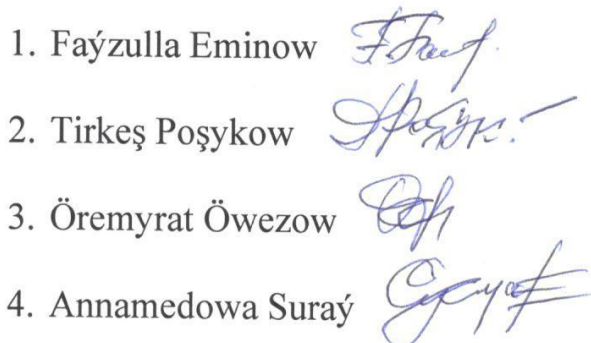 1. Faýzulla Eminow
2. Tirkeş Poşykow
3. Öremyrat Öwezow
4. Annamedowa Suraý